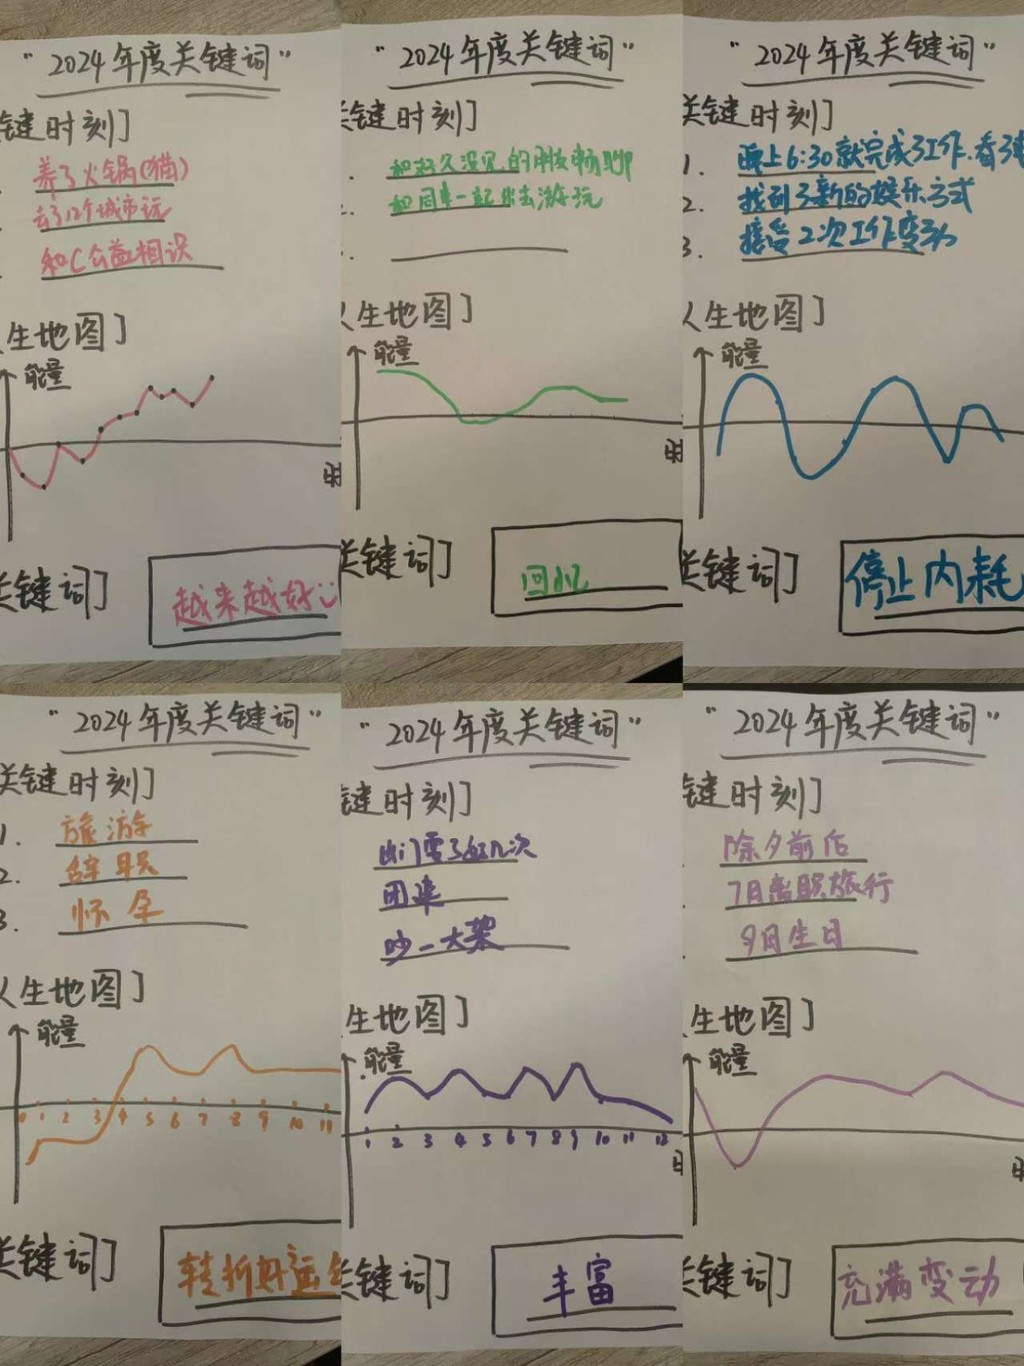 "2024年度关键词"
键时刻]
养了火锅(猫)
去了12个城市玩
和C公益相识
生地图]
能量
时
键词]
越来越好
"2024年度关键词"
关键时刻]
和好久没见的朋友畅聊
2. 和同事一起出去游玩
人生地图]
能量
时
关键词]
回忆
"2024年度关键词"
关键时刻]
1. 晚上6:30就完成了工作.看了
2. 找到了新的娱乐方式
3. 接受2次工作变动
人生地图]
能量
关键词]
停止内耗
"2024年度关键词"
关键时刻]
1. 旅游
2. 辞职
3. 怀孕
人生地图]
能量
0 1 2 3 4 5 6 7 8 9 10 11
关键词]
转折好运
"2024年度关键词"
键时刻]
出门耍了好几次
团建
吵一大架
生地图]
能量
1 2 3 4 5 6 7 8 9 10 11 12
关键词]
丰富
"2024年度关键词"
键时刻]
除夕前后
7月离职旅行
9月生日
人生地图]
能量
时
关键词]
充满变动